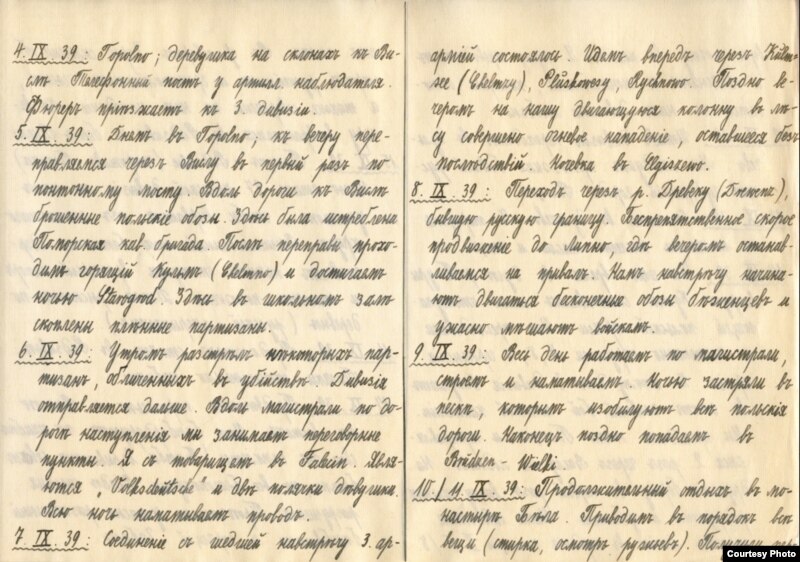 4. IX 39: Topolno; деревушка на склонахъ къ Ви-
слѣ. Телефонный постъ у артил. наблюдателя.
Фюреръ прiѣзжаетъ къ 3. дивизiи.
5. IX 39: Днемъ въ Topolno; къ вечеру пере-
правляемся черезъ Вислу въ первый разъ по
понтонному мосту. Вдоль дороги къ Вислѣ
брошенные польскiе обозы. Здѣсь была истреблена
Поморская кав. бригада. Послѣ переправы прохо-
димъ горящiй Кульмъ (Chelmno) и достигаемъ
ночью Starogrod. Здѣсь въ школьномъ залѣ
скоплены плѣнные партизаны.
6. IX. 39: Утромъ разстрѣлъ нѣкоторыхъ пар-
тизанъ, обличенныхъ въ убiйствѣ. Дивизiя
отправляется дальше. Вдоль магистрали по до-
рогѣ наступленiя мы занимаемъ переговорные
пункты. Я съ товарищемъ въ Falcin. Явля-
ются „Volksdeutsche" и двѣ полячки дѣвушки.
Всю ночь наматываемъ проводъ.
7. IX. 39: Соединенiе съ шедшей навстрѣчу 3. ар-
армiей состоялось. Идемъ впередъ черезъ Kulm-
see (Chelmzy), Pluskowesy, Rychnowo. Поздно ве-
черомъ на нашу двигающуюся колонну въ лѣ-
су совершено огневое нападенiе, оставшееся безъ
послѣдствiй. Ночевка въ Elgiszewo.
8. IX 39: Переходъ черезъ р. Древенцу (Drewenz),
бывшую рускую границу. Безпрепятственное скорое
продвиженiе до Липно, гдѣ вечеромъ останав-
ливаемся на привалъ. Намъ навстрѣчу начина-
ютъ двигаться безконечные обозы бѣженцевъ и
ужасно мѣшаютъ войскамъ.
9. IX 39: Весь день работаемъ по магистрали,
строемъ и наматываемъ. Ночью застряли въ
пескѣ, которымъ изобилуютъ всѣ польскiя
дороги. Наконецъ поздно попадаемъ въ
Brudzen - Wielki
10./11 IX 39: Продолжительный отдыхъ въ мо-
настырѣ Бѣла. Приводимъ въ порядокъ всѣ
вещи (стирка, осмотръ ружьевъ).
Courtesy Photo